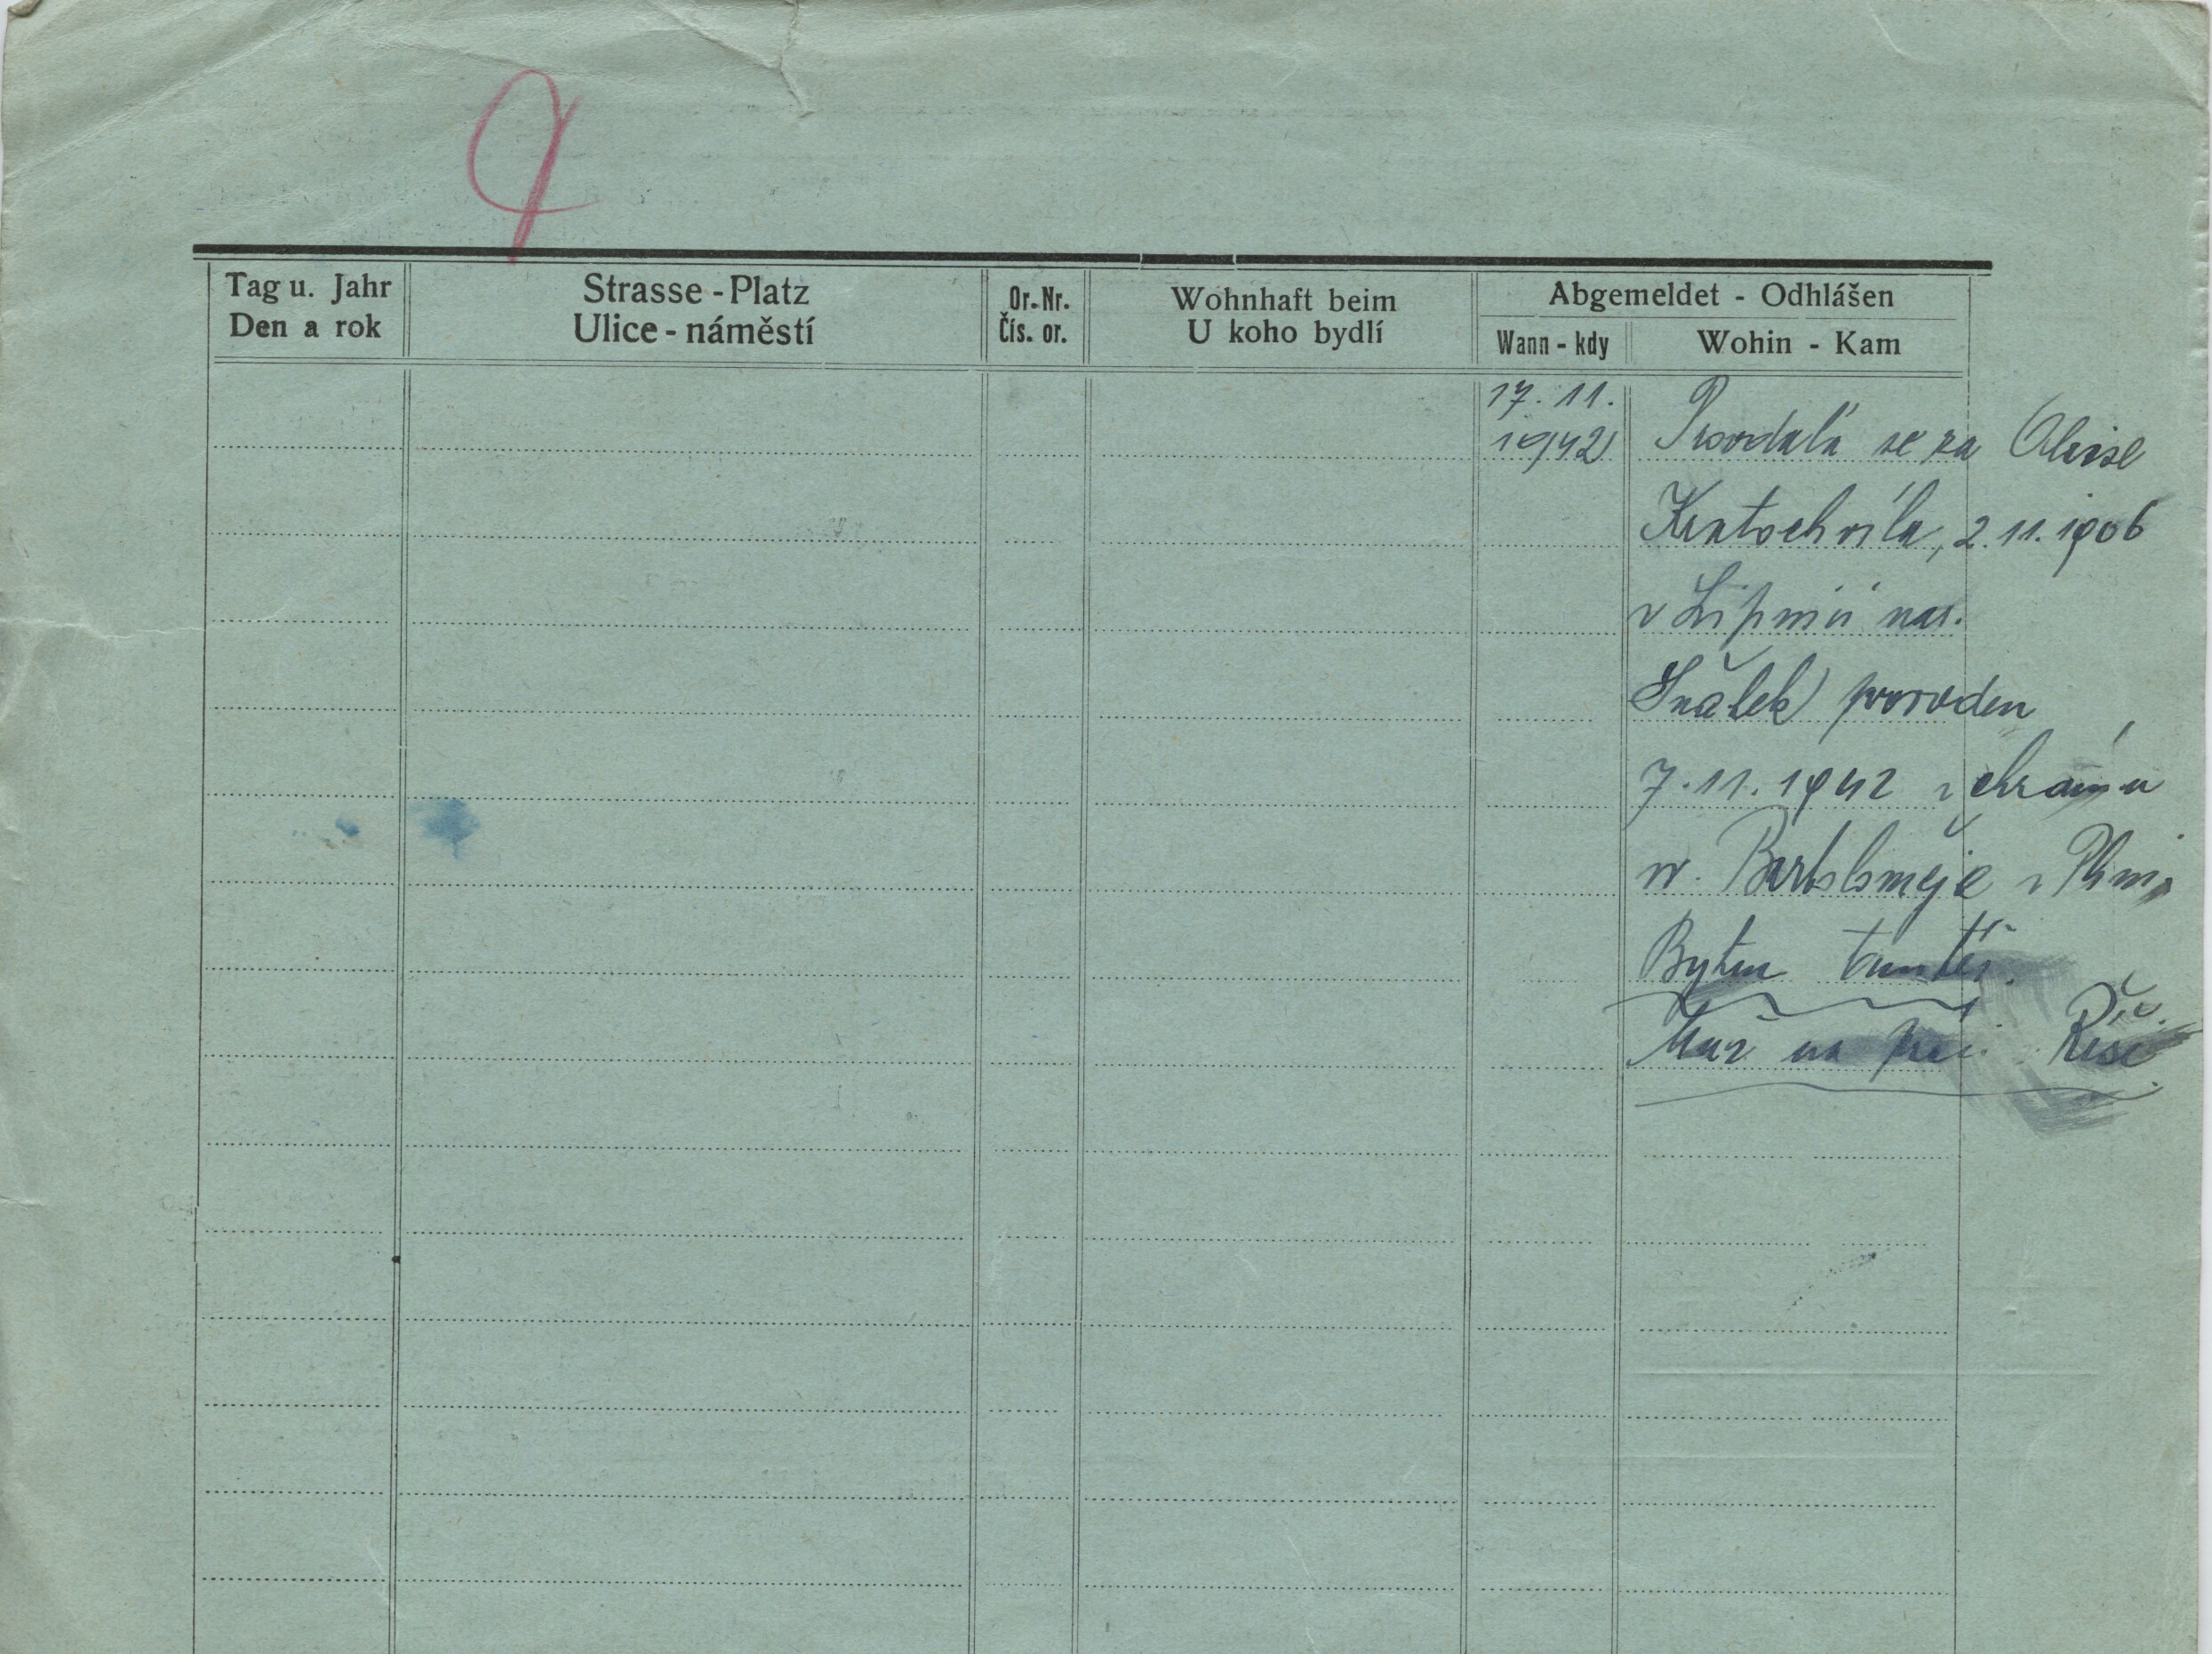 Tag u. Jahr
Den a rok
Strasse - Platz
Ulice - náměstí
Or.-Nr.
Čís. or.
Wohnhaft beim
U koho bydlí
Abgemeldet - Odhlášen
Wann - kdy
Wohin - Kam
17. 11.
1942
Provdala se za Aloise
Kratochvíla, 2. 11. 1906
v Lipnici nar.
Sňatek proveden
7. 11. 1942 v chrámu
sv. Bartoloměje v Plzni
Bytem tamtéž.
Muž na prac. Říš.